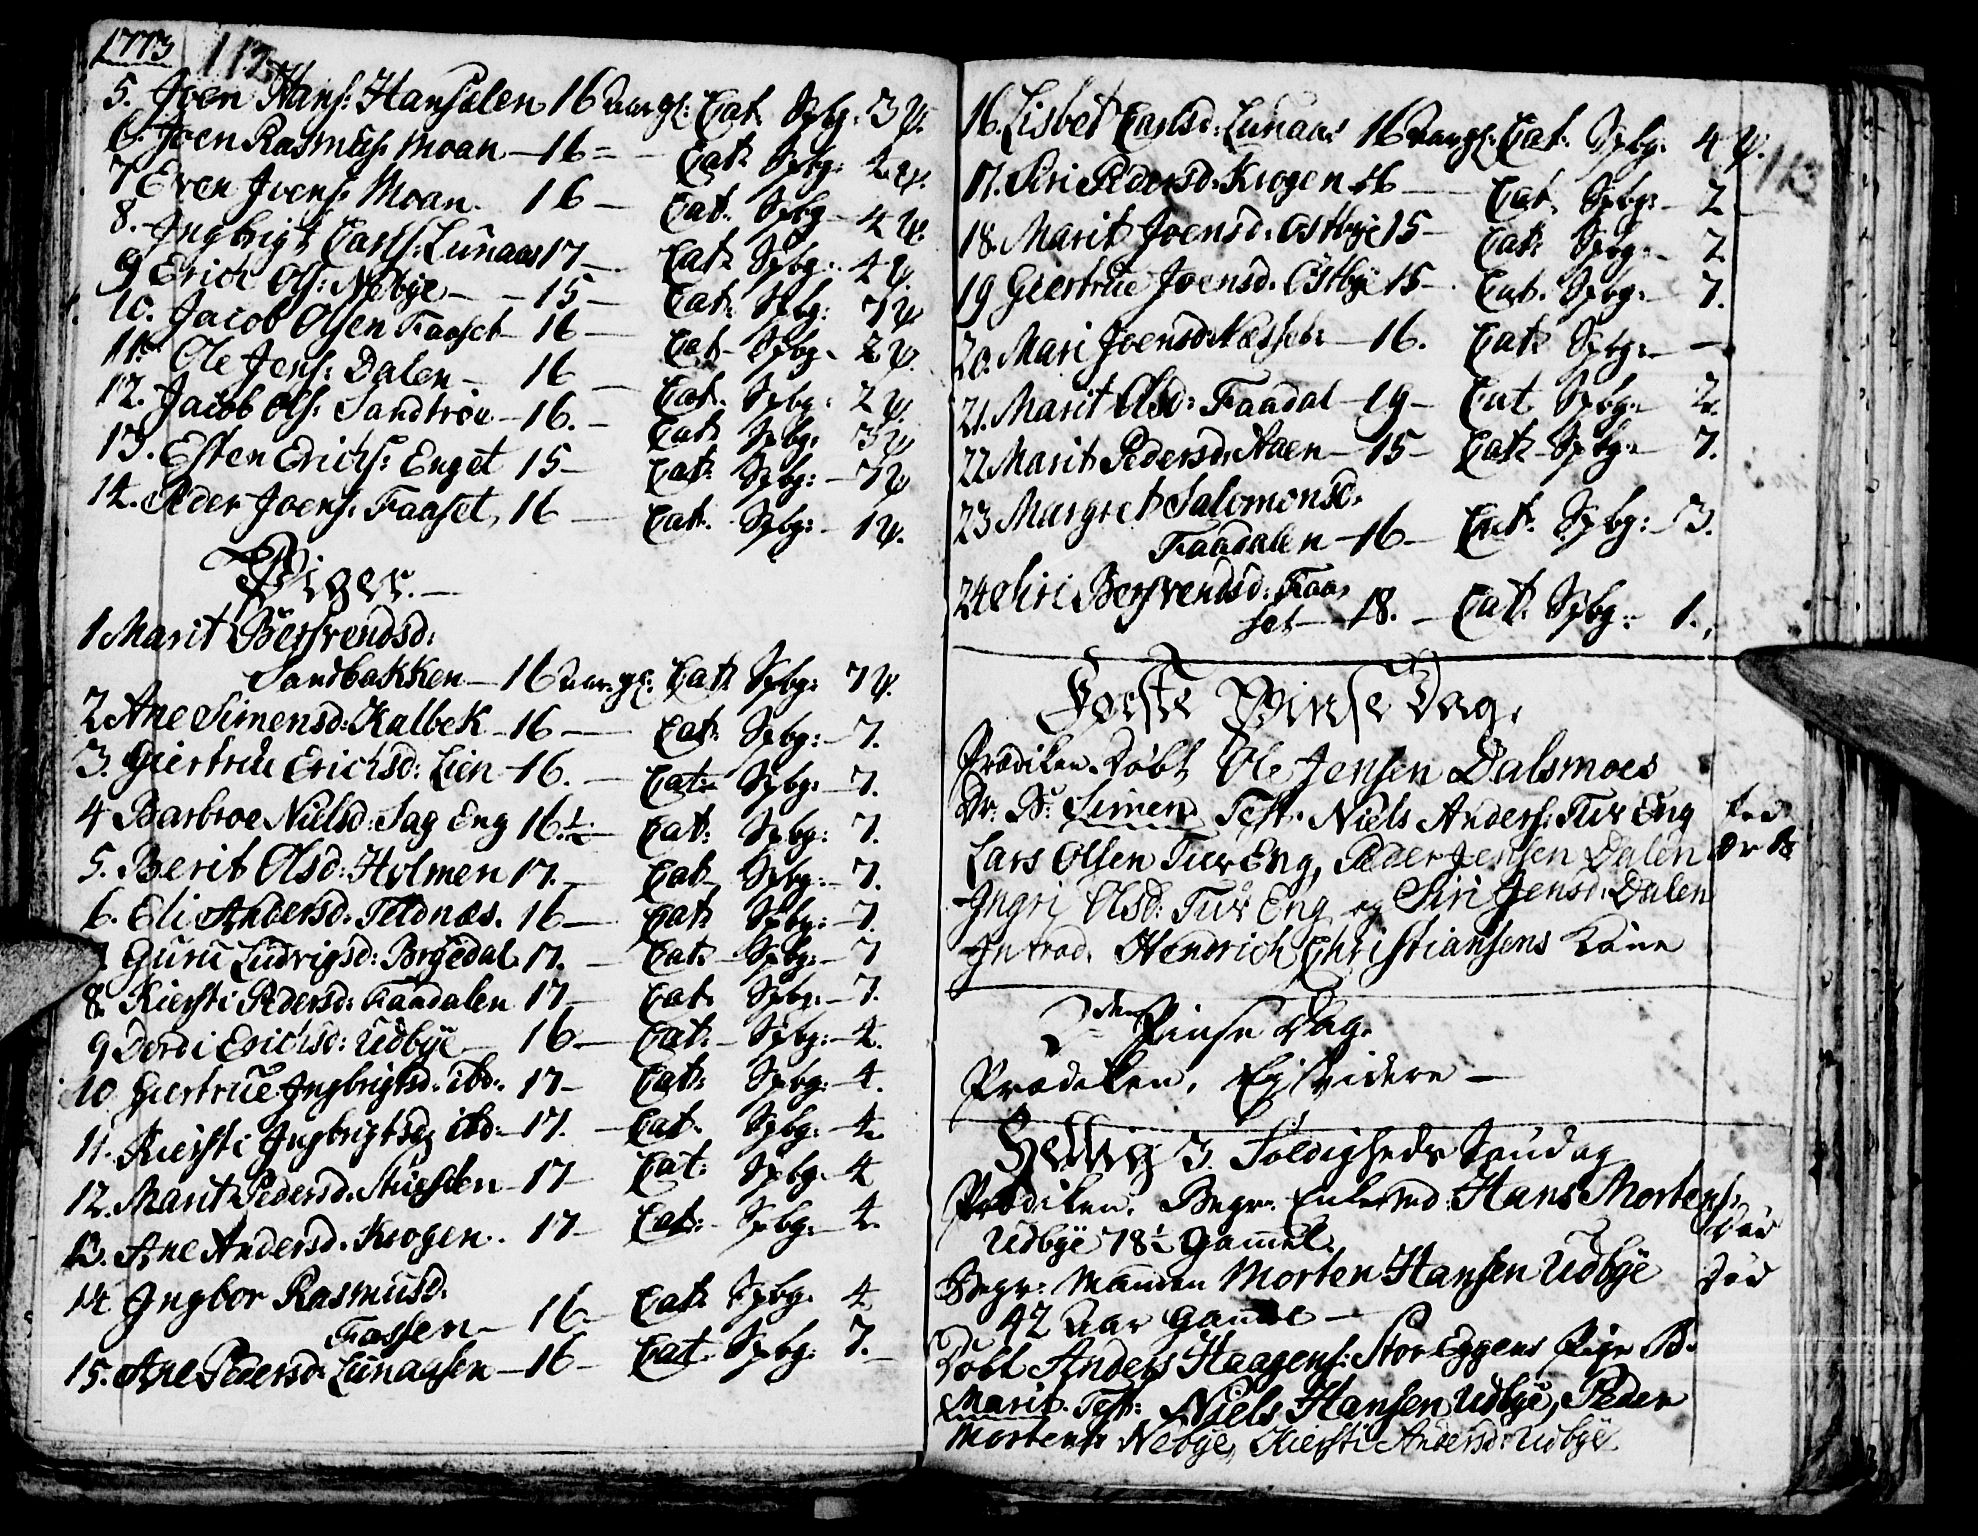 1773 112
5. Joen Hans: Hansdlen 16 Aar gl: Cat. Spbg. 3 ψ.
6. Joen Rasmus: Moan – 16 = – Cat: Spbg: 4 ψ.
7 Even Joens: Moan. 16 – Cat. Spbg – 4 ψ.
8. Ingbrigt Carls: Lunaas 17 – Cat: Spbg. 4 ψ.
9 Erich Ols: Nebÿe – – 15 – Cat: Spbg: 7 ψ
10. Jacob Olsen Faaset – 16 – Cat – Spbg. 2 ψ.
11. Ole Jens: Dalen – 16 – Cat. Spbg: 2 ψ.
12. Jacob Ols: Sandtrøe – 16. – Cat: Spbg. 3 ψ
13. Esten Erichs: Enget 15 – Cat: Spbg: – 7 ψ
14. Peder Joens. Faaset, 16 – Cat. Spbg: – 1 ψ.
Piger. –
1 Marit Bersvendsd:
Sandbakken – 16 Aar gl: Cat: Spbg: 7 ψ.
2 Ane Simensd: Kalbek – 16 – Cat: Spbg: – 7.
3. Giertrue Erichsd: Lien – 16. – Cat: Spbg: – 7.
4 Barbroe Nielsd: Sag Eng 16 ½ – Cat: Spbg: 7.
5. Berit Olsd: Holmen 17. – Cat. Spbg: – 7.
6. Eli Andersd. Teldnæs. 16 – Cat: Spbg: – 7.
7 Guru Ludvigsd: Brÿedal. 17. – Cat – Spbg: – 7
8. Kiersti Pedersd: Faadalen 17 – Cat. Spbg. – 7.
9 Dordi Erichsd: Udbÿe – 16 – Cat: – Spbg: – 4.
10 Giertrue Ingbrigtsd. ibd: 17 – Cat: Spbg: – 4.
11. Kiersti Ingbrigtsd ibd – 17. – Cat. Spbg: – 4.
12. Marit Pedersd. – 17 Cat: Spbg: – 4
13. Ane Andersd. Krogen. 17 – Cat: – Spbg. – 4.
14 Ingbor Rasmusd.
Fossen – 16 – Cat: Spbg. 4
15. Ane Pedersd: Lunaasen – 16 – Cat. Spbg: 7. –
113
16. Lisbet Carlsd: Lunaas 16 Aar gl: Cat. Spbg. 4 ψ.
17. Siri Pedersd. Krogen 16 – Cat. Spbg: – 2 –
18. Marit Joensd. Østbÿe 15 – Cat: Spbg: – 7
19 Giertrue Joensd. Østbÿe 15 – Cat. Spbg: – 7.
20. Mari Joensd Næsset: – 16. Cat: Spbg: – –
21. Marit Olsd: Faadal – 19 – Cat. Spbg. – 2.
22 Marit Pedersd. Aaen – 15 – Cat: – Spbg: – 7.
23 Margret Salomonsd:
Faadalen – 16 – Cat. Spbg: – 3.
24 Siri Bersvendsd: Faa,
set – 18. – Cat: Spbg: 1.
Første Pinse Dag.
Prædiken. Døbt Ole Jensen Dalsmoes
Dr: B: Simen Test. Niels Anders: Tuv Eng
Lars Olsen Tuv Eng, Peder Jensen Dalen
Ingri Olsd: Tuv Eng og Siri Jensd. Dalen
Introd. Hendrich Christiansens Kone
2den Pinse Dag.
Prædiken. Ej videre –
Hellig 3. Foldigheds Søndag
Prædiken. Begr. Hans Mortens:
Udbÿe 78 ½ gamel. Død
Begr: Manden Morten Hansen Udbÿe Død
42 Aar gamle –
Døbt Anders Haagens: Stor Eggens Pige B.
Marit. Test: Niels Hansen Udbÿe, Peder
Mortens Nebÿe, Kiersti Andersd: Udbÿe